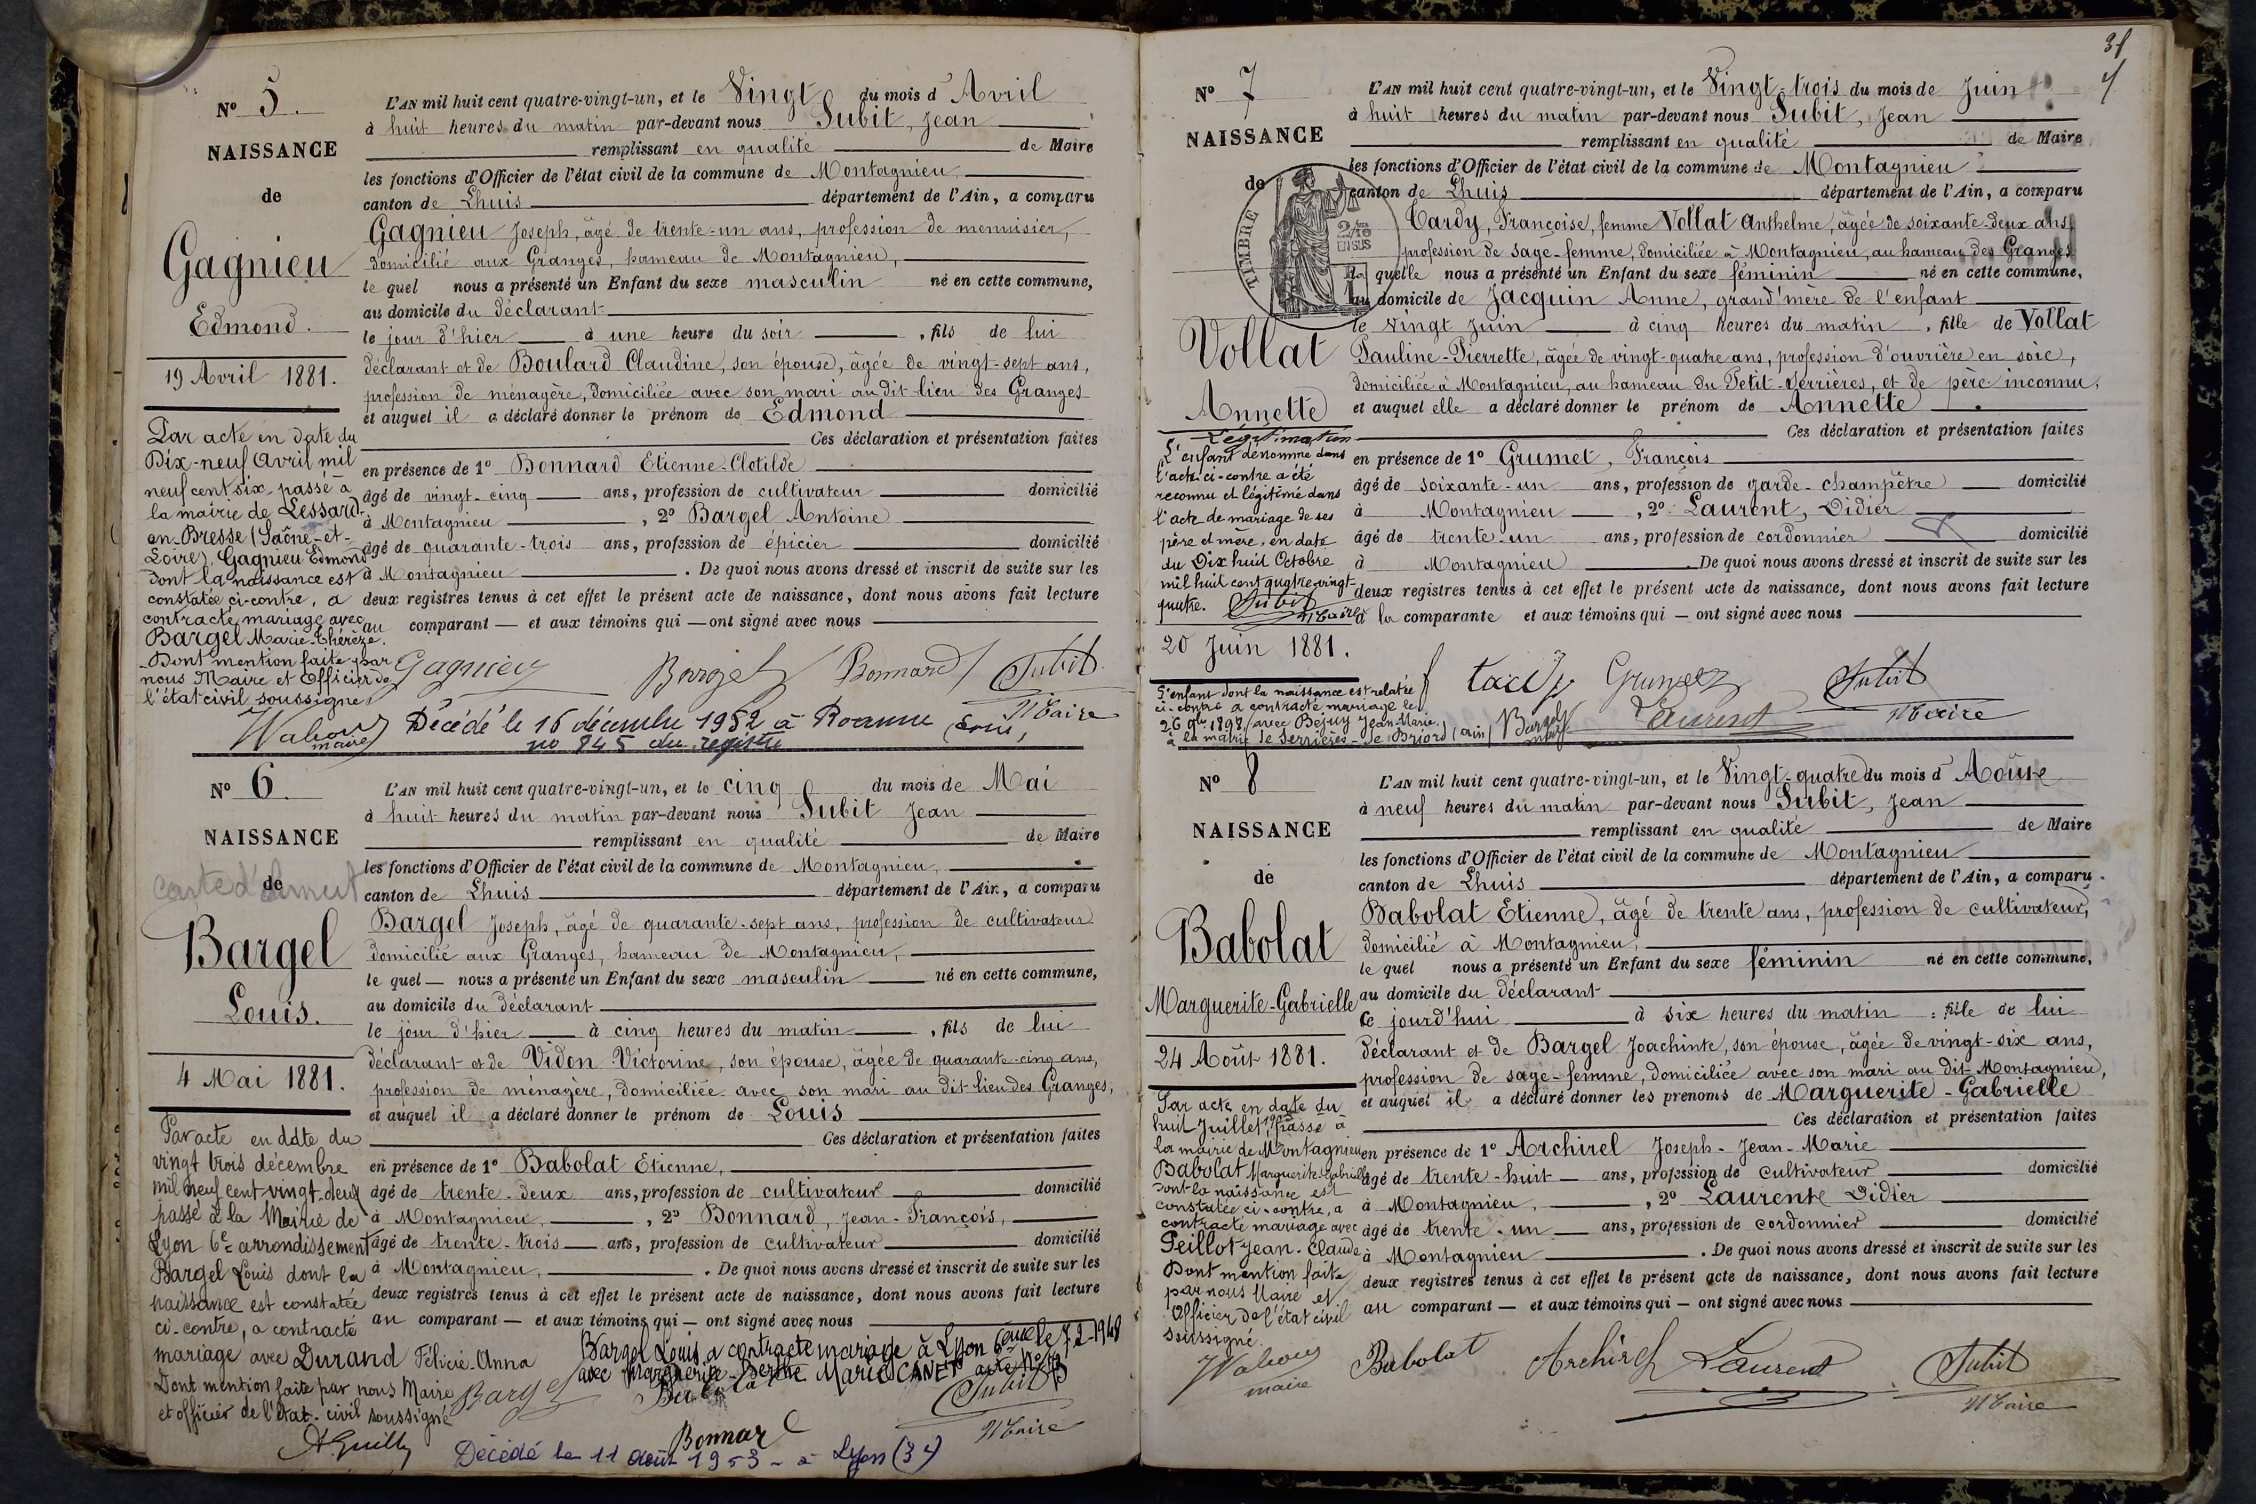 N° 5.
NAISSANCE
de
Gagnieu
Edmond.
19 Avril 1881.
Par acte en date du
Dix-neuf Avril mil
neuf cent six, passé à
la mairie de Lessard-
en-Bresse (Saône-et-
Loire), Gagnieu Edmond
dont la naissance est
constatée ci-contre, a
contracté mariage avec
Bargel Marie-Thérèze.
Dont mention faite par
nous Maire et Officier de
l'état civil soussigné
maire
L'AN mil huit cent quatre-vingt-un, et le Vingt du mois d'Avril
à huit heures du matin par-devant nous Subit, Jean
remplissant en qualité de Maire
les fonctions d'Officier de l'état civil de la commune de Montagnieu,
canton de Lhuis département de l'Ain, a comparu
Gagnieu Joseph, âgé de trente-un ans, profession de menuisier,
domicilié aux Granges, hameau de Montagnieu,
le quel nous a présenté un Enfant du sexe masculin né en cette commune,
au domicile du déclarant
le jour d'hier à une heure du soir, fils de lui
déclarant et de Boulard Claudine, son épouse, âgée de vingt-sept ans,
profession de ménagère, domiciliée avec son mari au dit lieu des Granges
et auquel il a déclaré donner le prénom de Edmond
Ces déclaration et présentation faites
en présence de 1° Bonnard Etienne-Clotilde
âgé de vingt-cinq ans, profession de cultivateur domicilié
à Montagnieu, 2° Bargel Antoine
âgé de quarante-trois ans, profession de épicier domicilié
à Montagnieu. De quoi nous avons dressé et inscrit de suite sur les
deux registres tenus à cet effet le présent acte de naissance, dont nous avons fait lecture
au comparant — et aux témoins qui — ont signé avec nous
Gagnieu Bargel Bonnard Subit
Maire
Décédé le 16 décembre 1952 à Roanne
no 845 du registre
N° 6
NAISSANCE
de
Bargel
Louis.
4 Mai 1881.
Par acte en date du
vingt trois décembre
mil neuf cent vingt-deux
passé à la Mairie de
Lyon 6e arrondissement
Bargel Louis dont la
naissance est constatée
ci-contre, a contracté
mariage avec Durand Félicie-Anna
Dont mention faite par nous Maire
et officier de l'état-civil soussigné
L'AN mil huit cent quatre-vingt-un, et le cinq du mois de Mai
à huit heures du matin par-devant nous Subit Jean
remplissant en qualité de Maire
les fonctions d'Officier de l'état civil de la commune de Montagnieu,
canton de Lhuis département de l'Ain, a comparu
Bargel Joseph, âgé de quarante-sept ans, profession de cultivateur
domicilié aux Granges, hameau de Montagnieu,
le quel — nous a présenté un Enfant du sexe masculin né en cette commune,
au domicile du déclarant
le jour d'hier à cinq heures du matin, fils de lui
déclarant et de Vidon Victorine, son épouse, âgée de quarante-cinq ans,
profession de ménagère, domiciliée avec son mari au dit lieu des Granges,
et auquel il a déclaré donner le prénom de Louis
Ces déclaration et présentation faites
en présence de 1° Babolat Etienne,
âgé de trente-deux ans, profession de cultivateur domicilié
à Montagnieu, 2° Bonnard, Jean-François,
âgé de trente-trois ans, profession de cultivateur domicilié
à Montagnieu, . De quoi nous avons dressé et inscrit de suite sur les
deux registres tenus à cet effet le présent acte de naissance, dont nous avons fait lecture
au comparant — et aux témoins qui — ont signé avec nous
Bargel Louis a contracté mariage à Lyon 6eme le 7-2-1948
avec Marguerite Berthe Marie CANET acte N°
Bargel Babolat Subit
Bonnard Maire
Décédé le 11 août 1953 - à Lyon (3e)
N° 7
NAISSANCE
de
TIMBRE
2/10
EN SUS
Vollat
Annette
Légitimation
L'enfant dénommé dans
l'acte ci-contre a été
reconnu et légitimé dans
l'acte de mariage de ses
père et mère, en date
du Dix huit Octobre
mil huit cent quatre-vingt-
quatre. Subit
Maire
20 Juin 1881.
L'enfant dont la naissance est relatée
ci-contre a contracté mariage le
26 9bre 1898, avec Bejuy Jean-Marie
à la mairie de Serrières-de-Briord (Ain) Bargel
L'AN mil huit cent quatre-vingt-un, et le Vingt-trois du mois de Juin
à huit heures du matin par-devant nous Subit, Jean
remplissant en qualité de Maire
les fonctions d'Officier de l'état civil de la commune de Montagnieu
canton de Lhuis département de l'Ain, a comparu
Tardy, Françoise, femme Vollat Anthelme, âgée de soixante-deux ans,
profession de sage-femme, domiciliée à Montagnieu, au hameau des Granges
la quelle nous a présenté un Enfant du sexe féminin né en cette commune,
au domicile de Jacquin Anne, grand'mère de l'enfant
le vingt Juin à cinq heures du matin, fille de Vollat
Pauline-Pierrette, âgée de vingt-quatre ans, profession d'ouvrière en soie,
domiciliée à Montagnieu, au hameau du Petit-Serrières, et de père inconnu,
et auquel elle a déclaré donner le prénom de Annette
Ces déclaration et présentation faites
en présence de 1° Grumet, François
âgé de soixante-un ans, profession de garde-champêtre domicilié
à Montagnieu, 2° Laurent, Didier
âgé de trente-un ans, profession de cordonnier domicilié
à Montagnieu. De quoi nous avons dressé et inscrit de suite sur les
deux registres tenus à cet effet le présent acte de naissance, dont nous avons fait lecture
à la comparante et aux témoins qui — ont signé avec nous
f tardy Grumet Subit
Laurent Maire
N° 8
NAISSANCE
de
Babolat
Marguerite-Gabrielle
24 Août 1881.
Par acte en date du
huit Juillet, passé à
la mairie de Montagnieu
Babolat Marguerite-Gabrielle
dont la naissance est
constatée ci-contre, a
contracté mariage avec
Peillot Jean-Claude
Dont mention faite
par nous Maire et
Officier de l'état civil
soussigné.
maire
L'AN mil huit cent quatre-vingt-un, et le Vingt-quatre du mois d'Août
à neuf heures du matin par-devant nous Subit, Jean
remplissant en qualité de Maire
les fonctions d'Officier de l'état civil de la commune de Montagnieu
canton de Lhuis département de l'Ain, a comparu
Babolat Etienne, âgé de trente ans, profession de cultivateur,
domicilié à Montagnieu,
le quel nous a présenté un Enfant du sexe féminin né en cette commune,
au domicile du déclarant
ce jourd'hui à six heures du matin, fille de lui
déclarant et de Bargel Joachinte, son épouse, âgée de vingt-six ans,
profession de sage-femme, domiciliée avec son mari au dit Montagnieu,
et auquel il a déclaré donner les prénoms de Marguerite-Gabrielle
Ces déclaration et présentation faites
en présence de 1° Archirel Joseph-Jean-Marie
âgé de trente-huit ans, profession de cultivateur domicilié
à Montagnieu, , 2° Laurent Didier
âgé de trente-un ans, profession de cordonnier domicilié
à Montagnieu. De quoi nous avons dressé et inscrit de suite sur les
deux registres tenus à cet effet le présent acte de naissance, dont nous avons fait lecture
au comparant — et aux témoins qui — ont signé avec nous
Babolat Archirel Laurent Subit
Maire